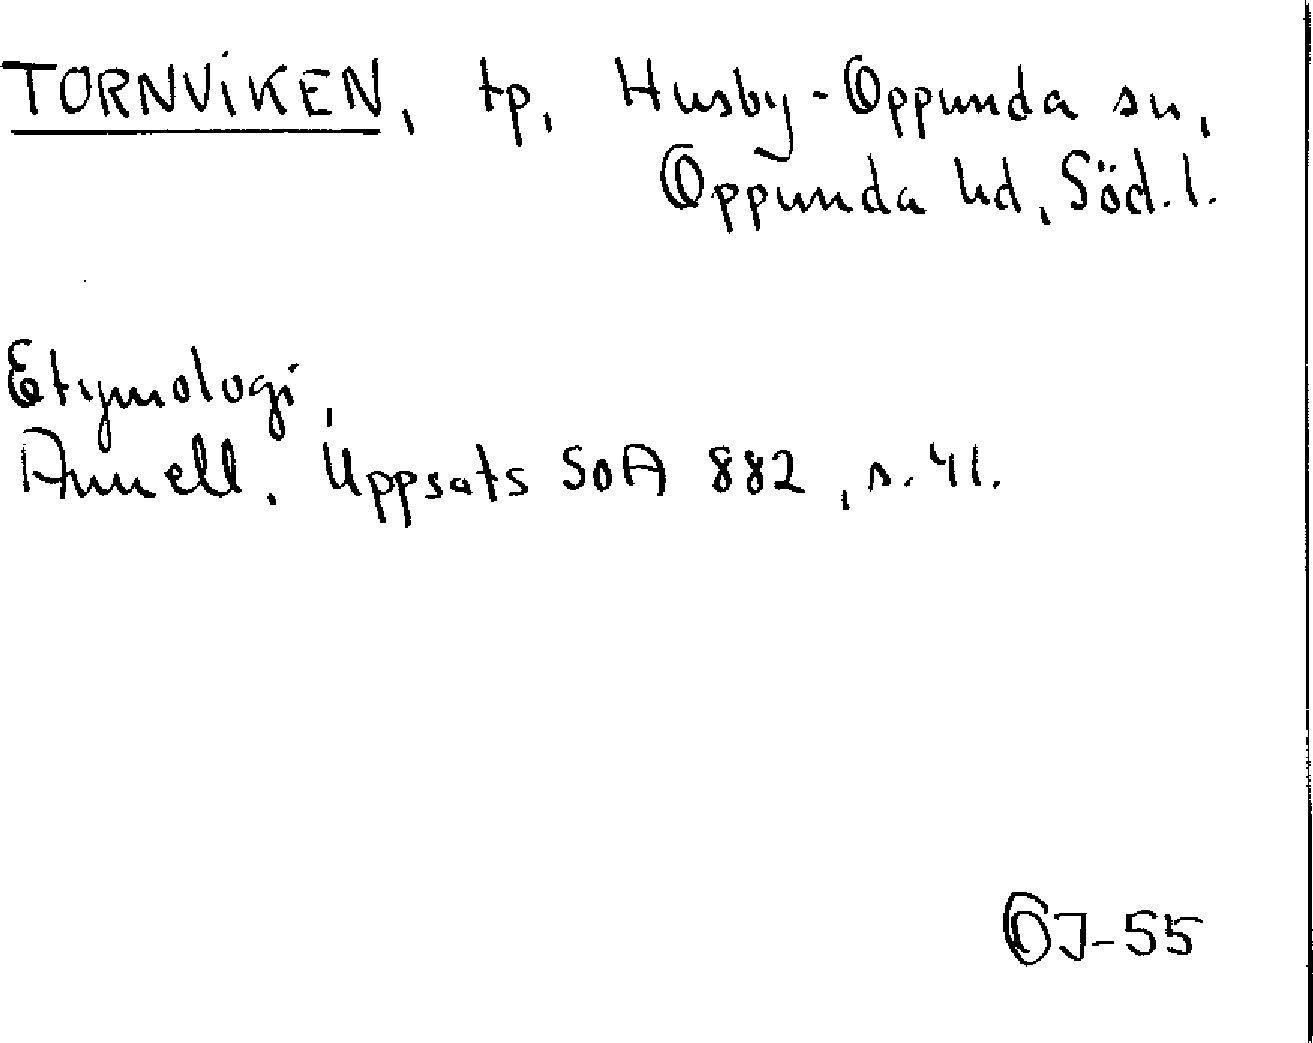 TORNVIKEN, tp, Husby-Oppunda sn,
Oppunda hd, Söd.l.
Etymologi,
Annell. Uppsats SOA 882, s. 41.
OJ-55